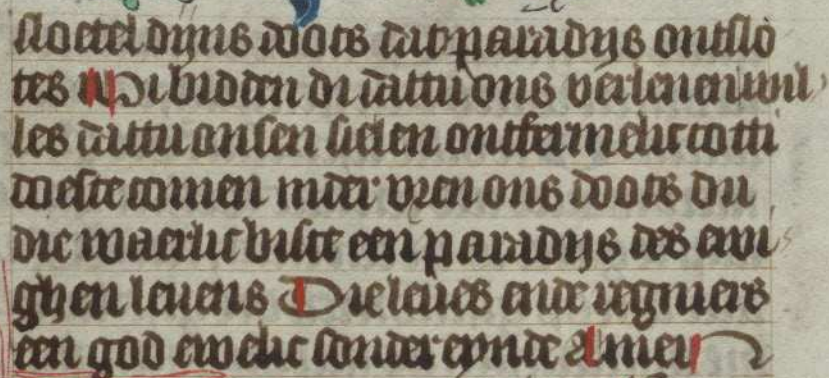 sloetel dijns doots dat paradijs ontslo
tes Wi bidden di dattu ons verlenen wil
les dattu onsen sielen ontfermelic totti
doeste comen inder vren ons doots du
die waerlic biste een paradijs des ewi
ghen leuens Die leues ende regniers
een god ewelic sonder eynde Amen